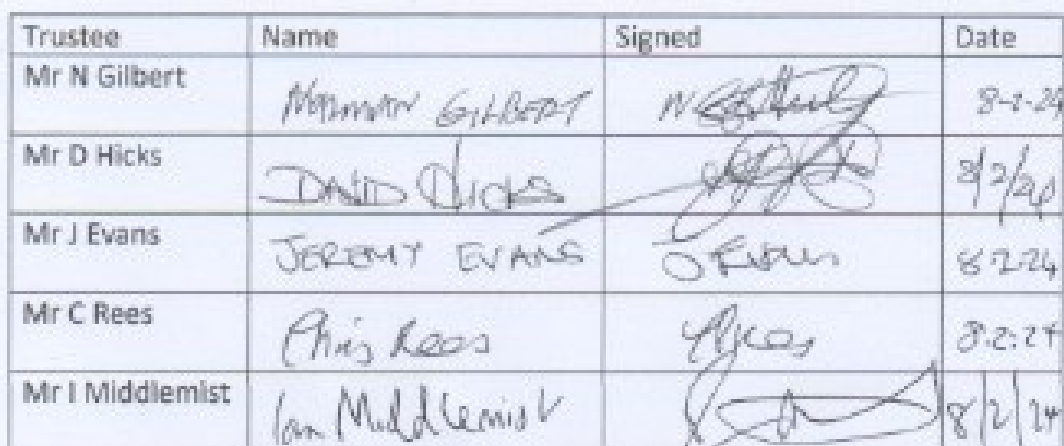 Trustee Name Signed Date
Mr N Gilbert NORMAN GILBERT 8-2-24
Mr D Hicks DAVID HICKS 8/2/24
Mr J Evans JEREMY EVANS J Evans 8.2.24
Mr C Rees Chris Rees 8.2.24
Mr I Middlemist Ian Middlemist 8/2/24